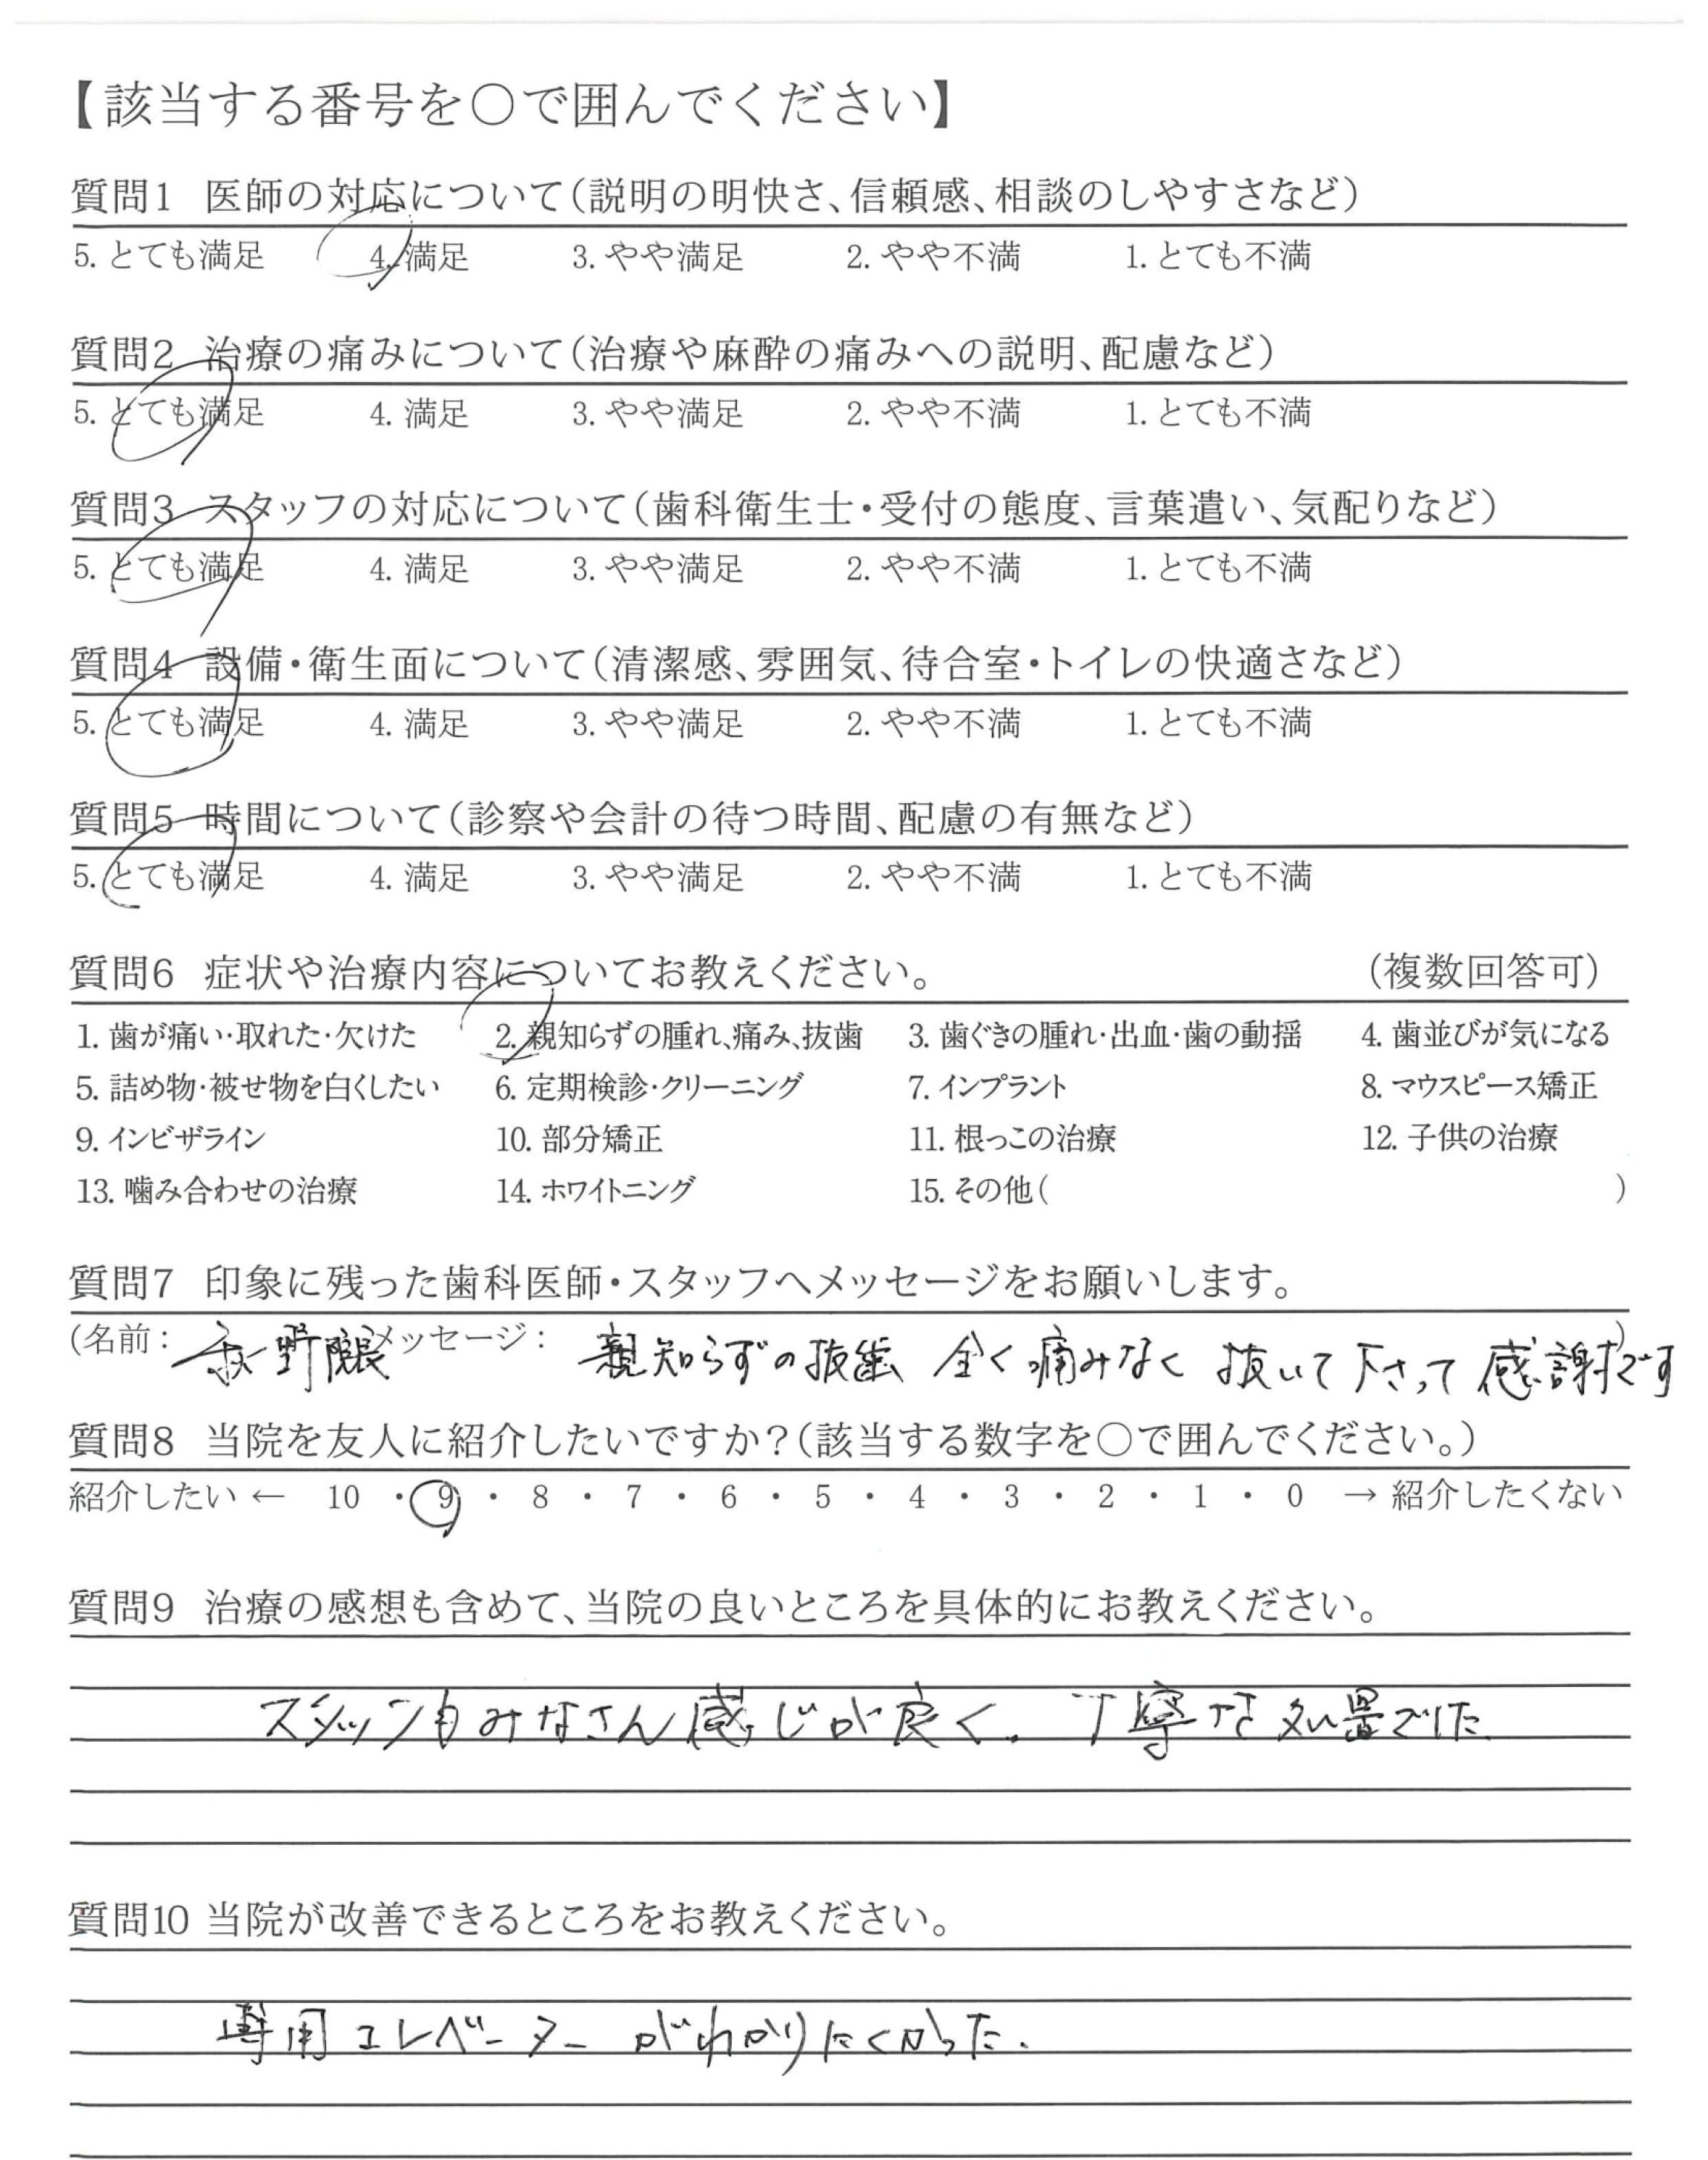 【該当する番号を○で囲んでください】
質問1 医師の対応について（説明の明快さ、信頼感、相談のしやすさなど）
5. とても満足 4. 満足 3. やや満足 2. やや不満 1. とても不満
質問2 治療の痛みについて（治療や麻酔の痛みへの説明、配慮など）
5. とても満足 4. 満足 3. やや満足 2. やや不満 1. とても不満
質問3 スタッフの対応について（歯科衛生士・受付の態度、言葉遣い、気配りなど）
5. とても満足 4. 満足 3. やや満足 2. やや不満 1. とても不満
質問4 設備・衛生面について（清潔感、雰囲気、待合室・トイレの快適さなど）
5. とても満足 4. 満足 3. やや満足 2. やや不満 1. とても不満
質問5 時間について（診察や会計の待つ時間、配慮の有無など）
5. とても満足 4. 満足 3. やや満足 2. やや不満 1. とても不満
質問6 症状や治療内容についてお教えください。 （複数回答可）
1. 歯が痛い・取れた・欠けた 2. 親知らずの腫れ、痛み、抜歯 3. 歯ぐきの腫れ・出血・歯の動揺 4. 歯並びが気になる
5. 詰め物・被せ物を白くしたい 6. 定期検診・クリーニング 7. インプラント 8. マウスピース矯正
9. インビザライン 10. 部分矯正 11. 根っこの治療 12. 子供の治療
13. 噛み合わせの治療 14. ホワイトニング 15. その他（ ）
質問7 印象に残った歯科医師・スタッフへメッセージをお願いします。
（名前： 野院長 メッセージ： 親知らずの抜歯 全く痛みなく 抜いて下さって感謝です ）
質問8 当院を友人に紹介したいですか？（該当する数字を○で囲んでください。）
紹介したい ← 10 ・ 9 ・ 8 ・ 7 ・ 6 ・ 5 ・ 4 ・ 3 ・ 2 ・ 1 ・ 0 → 紹介したくない
質問9 治療の感想も含めて、当院の良いところを具体的にお教えください。
みなさん感じが良く、丁寧な処置でした
質問10 当院が改善できるところをお教えください。
専用エレベーターがわかりにくかった.